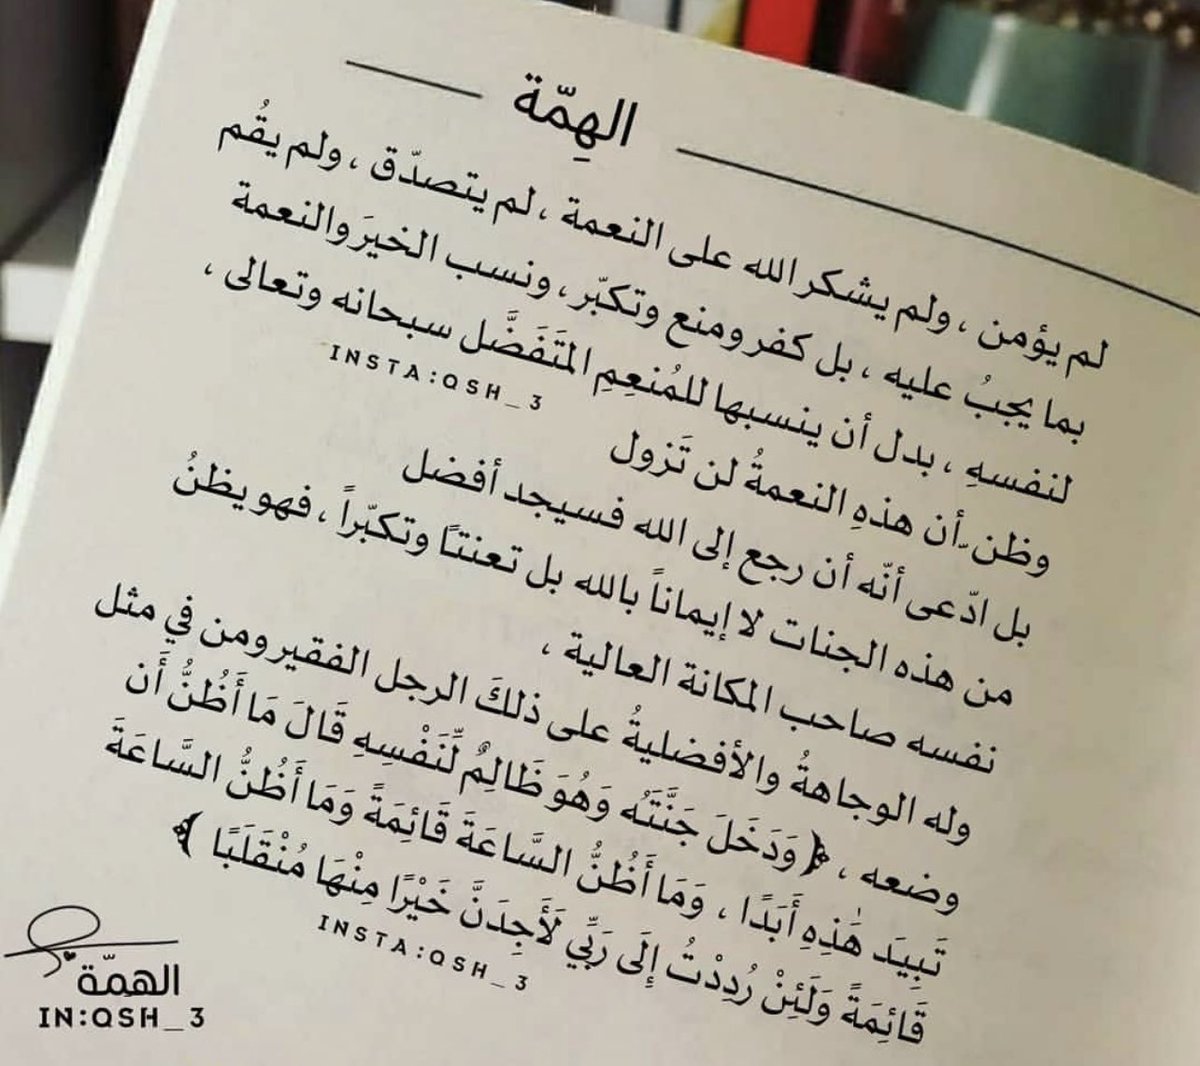 الهِمّة
لم يؤمن ، ولم يشكر الله على النعمة ، لم يتصدّق ، ولم يقُم
بما يجبُ عليه ، بل كفر ومنع وتكبّر ، ونسب الخيرَ والنعمة
لنفسهِ ، بدل أن ينسبها للمُنعِمِ المتَفَضَّل سبحانه وتعالى ،
INSTA:QSH_3
وظن ّأن هذهِ النعمةُ لن تَزول
بل ادّعى أنّه أن رجع إلى الله فسيجد أفضل
من هذه الجنات لا إيماناً بالله بل تعنتًا وتكبّراً ، فهو يظنُ
نفسه صاحب المكانة العالية ،
وله الوجاهةُ والأفضليةُ على ذلكَ الرجل الفقير ومن في مثل
وضعه ، ﴿وَدَخَلَ جَنَّتَهُ وَهُوَ ظَالِمٌ لِّنَفْسِهِ قَالَ مَا أَظُنُّ أَن
تَبِيدَ هَٰذِهِ أَبَدًا ، وَمَا أَظُنُّ السَّاعَةَ قَائِمَةً وَمَا أَظُنُّ السَّاعَةَ
قَائِمَةً وَلَئِنْ رُدِدْتُ إِلَى رَبِّي لَأَجِدَنَّ خَيْرًا مِنْهَا مُنْقَلَبًا ﴾
INSTA:QSH_3
الهمّة
IN:QSH_3